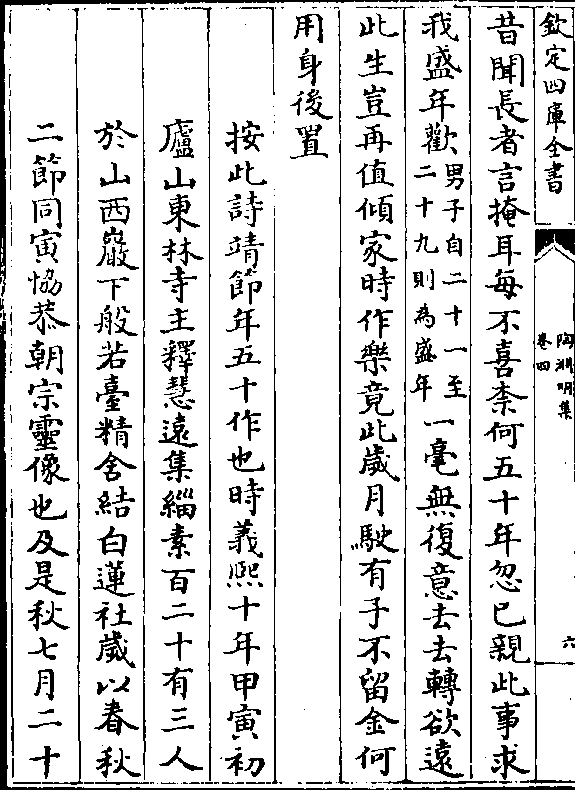 欽定四庫全書
陶淵明集
卷四
六
昔聞長者言掩耳每不喜柰何五十年忽已親此事求
我盛年歡男子自二十一至二十九則為盛年一毫無復意去去轉欲遠
此生豈再值傾家時作樂竟此歲月駛有子不留金何
用身後置
按此詩靖節年五十作也時義熙十年甲寅初
廬山東林寺主釋慧遠集緇素百二十有三人
於山西巖下般若臺精舍結白蓮社歲以春秋
二節同寅恊恭朝宗靈像也及是秋七月二十